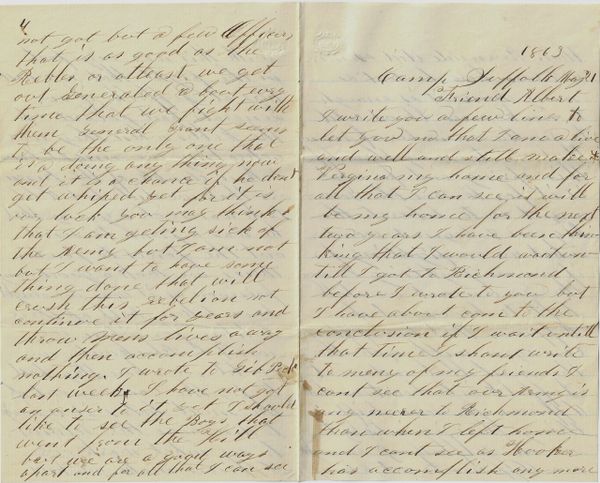 4
not got but a few Officers
that is as good as the
Rebles or atleast we get
out Generaled a bout evry
time that we fight with
them General grant seems
to be the only one that
is a doing any thing now
and it is a chance if he dont
get whiped yet for it is
our luck you may think
that I am geting sick of
the Army but I am not
but I want to have some
thing done that will
crush this rebelion not
continue it for years and
throw mens lives a way
and then accomplish
nothing. I wrote to
last week I have not got
an anser to it yet I should
like to see the Boys that
went from the Hill
but we are a good ways
apart and for all that I can see
1863
Camp Suffolk May 31
Friend Albert
I write you a few lines to
let you no that I am a live
and well and still makeing
Verginia my home and for
all that I can see it will
be my home for the next
two years I have been thin
king that I would wait un-
till I got to Richmond
before I wrote to you but
I have about com to the
conclusion if I wait untill
that time I shant write
to meny of my friends I
cant see that our Army is
any nearer to Richmond
than when I left home
and I cant see as Hooker
has accomplish any more